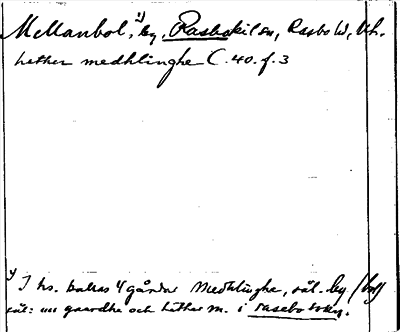 Mellanbol,¹⁾ by, Rasbokil sn, Rasbo hd, Uh.
hether medhlinghe C. 40. f. 3
¹⁾ I hs. kallas 4 gårdar Medhlinghe, by
gaardhe och hether m. i rasebo sokn.